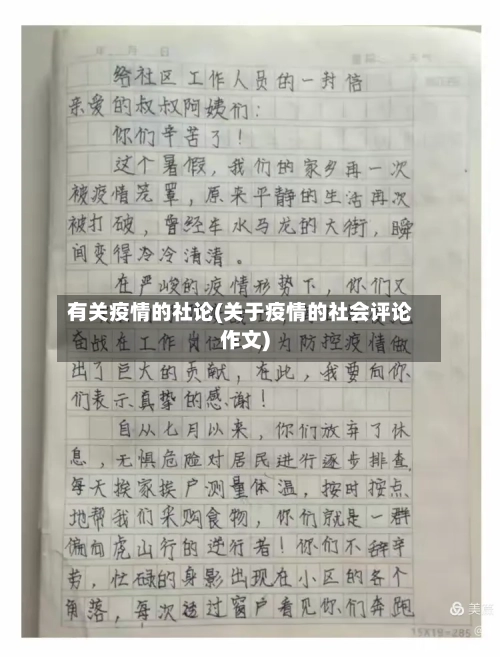 年 月 日
给社区工作人员的一封信
亲爱的叔叔阿姨们：
你们辛苦了！
这个暑假，我们的家乡再一次
被疫情笼罩，原来平静的生活再次
被打破，曾经车水马龙的大街，瞬
间变得冷冷清清。
在严峻的疫情形势下，你们又
有关疫情的社论(关于疫情的社会评论
作文)
奋战在工作岗位 为防控疫情做
出了巨大的贡献，在此，我要向你
们表示真挚的感谢！
自从七月以来，你们放弃了休
息，无惧危险对居民进行逐步排查，
每天挨家挨户测量体温，按时按点
地帮我们采购食物，你们就是一群
偏向虎山行的逆行者！你们不辞辛
劳，忙碌的身影出现在小区的各个
角落，每次透过窗户看见你们奔跑
15X19=285
美